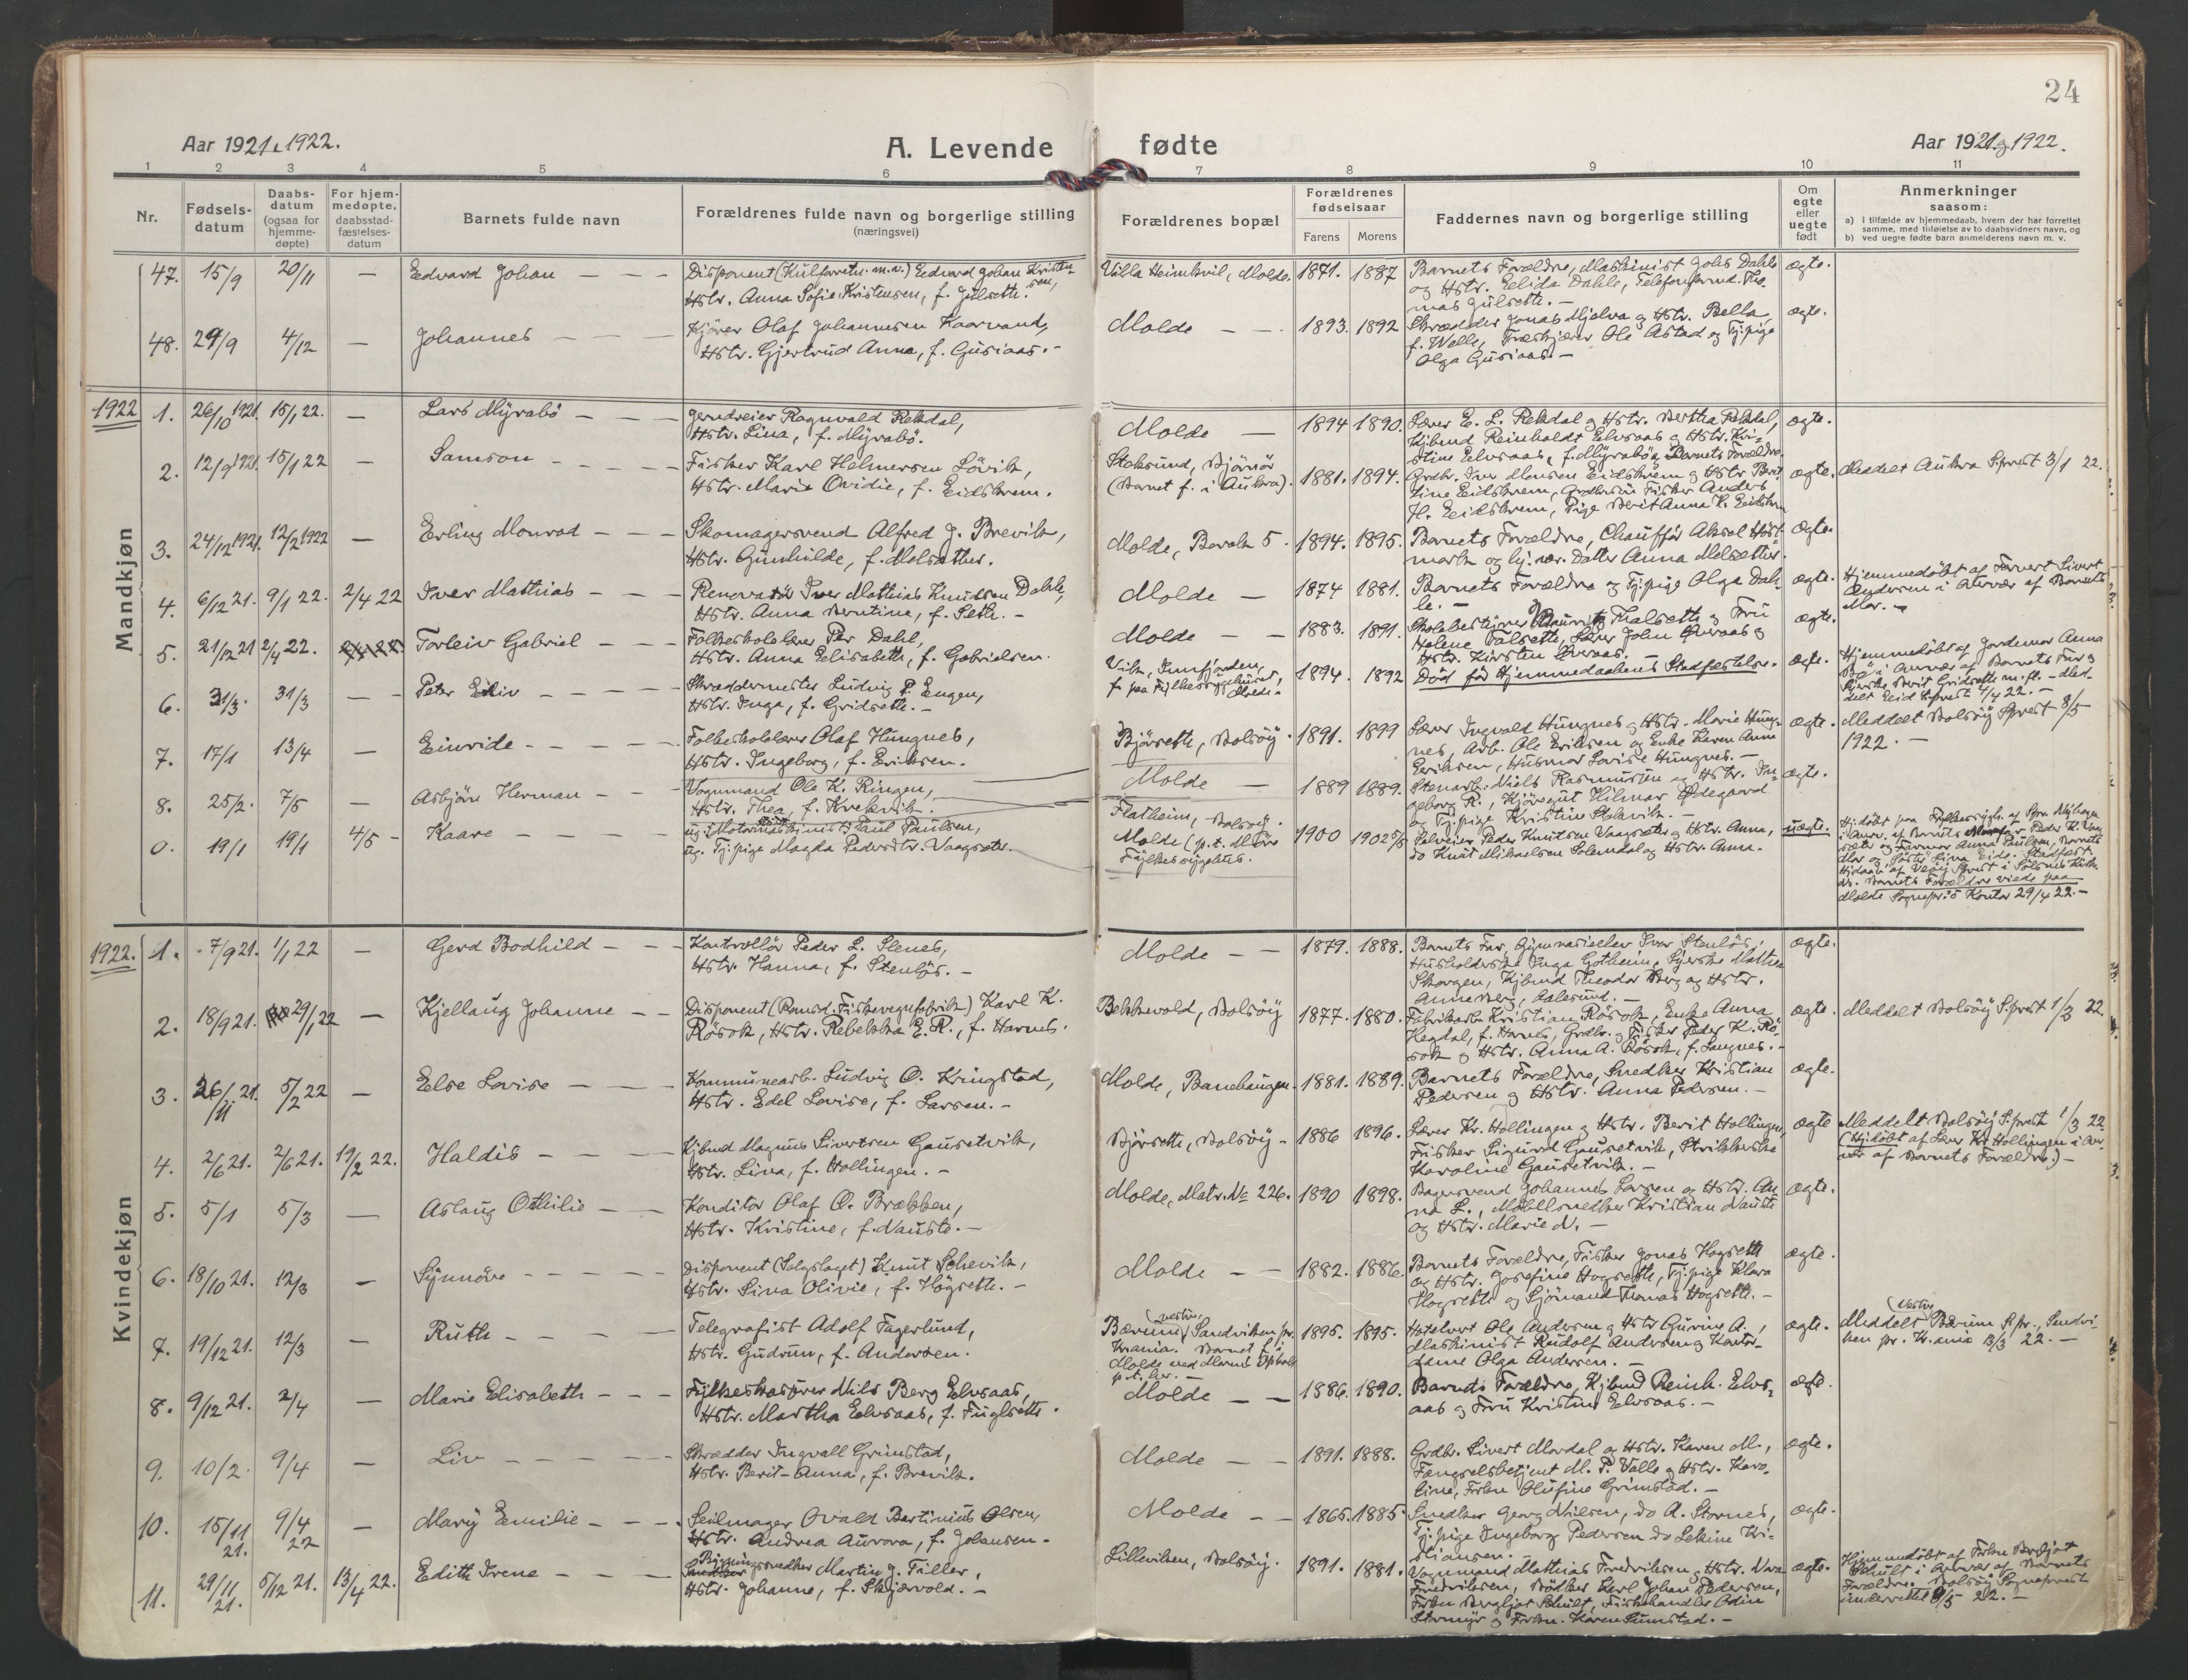 24
Aar 1921 & 1922.
A. Levende fødte
Aar 1921 og 1922.
1 2 3 4 5 6 7 8 9 10 11
Nr.
Fødsels-
datum
Daabs-
datum
(ogsaa for
hjemme-
døpte)
For hjem-
medøpte,
daabsstad-
fæstelses-
datum
Barnets fulde navn
Forældrenes fulde navn og borgerlige stilling
(næringsvei)
Forældrenes bopæl
Forældrenes
fødselsaar
Farens Morens
Faddernes navn og borgerlige stilling
Om
egte
eller
uegte
født
Anmerkninger
saasom:
a) i tilfælde av hjemmedaab, hvem der har forrettet
samme, med tilføielse av to daabsvidners navn, og
b) ved uegte fødte barn anmelderens navn m. v.
Mandkjøn
47. 15/9 20/11 — Edvard Johan — — Disponent (Kulforretn. m.v.) Edvard Johan Kristen-
sen,
Hstr. Anna Sofie Kristensen, f. Julseth.
Villa Heimkvil, Molde. 1871. 1887 Barnets Forældre, Maskinist Johs Dahle
og Hstr. Elida Dahle, Telefonformd. Tho-
mas Julseth. —
ægte.
48. 29/9 4/12 — Johannes — — — Kjører Olaf Johannesen Kaarvand,
Hstr. Gjertrud Anna, f. Gusiaas. —
Molde — — 1893. 1892 Skrædder Jonas Mjelva og Hstr. Bella,
f. Welle, Ole Astad og Tj.pige
Olga Gusiaas. —
ægte.
1922 1. 26/10 1921. 15/1 22. — Lars Myrabø — — — Ragnvald Rekdal,
Hstr. Lina, f. Myrabø.
Molde — 1894 1890. Lærer E. L. Rekdal og Hstr. Bertha Rekdal,
Kjbmd Reinholdt Elvsaas og Hstr. Kri-
stine Elvsaas, f. Myrabø, Barnets Forældre.
ægte.
2. 12/9 1921. 15/1 22 — Samson — — — — Fisker Karl Helmersen Løvik,
Hstr. Marie Ovidie, f. Eidskrem.
Stoksund, Bjørnør
(Barnet f. i Aukra). 1881. 1894. Grdbr. Iver Monsen Eidskrem og Hstr Berit
Line Eidskrem, Fisker Anders
H. Eidskrem, Pige Berit Anna K. Eidskrem
ægte. Meddelt Aukra S.prest 3/1 22.
3. 24/12 1921. 12/2 1922 — Erling Monrad — — Skomagersvend Alfred J. Brevik,
Hstr. Gunhilde, f. Melsæther.
Molde, Bervek 5. 1894. 1895. Barnets Forældre, Chauffør Aksel
mark og hj. vær. Datter Anna Melsætter.
ægte.
4. 6/12 21. 9/1 22. 2/4 22 Iver Mathias — — Renovatør Iver Mathias Knudsen Dahle,
Hstr. Anna Berntine, f. Seth. —
Molde — 1874 1881. Barnets Forældre og Tj.pige Olga Dah-
le. —
ægte. Hjemmedøbt af Sivert
Andersen i Overvær af Barnets
Mor. —
5. 21/12 21 2/4 22. Torleiv Gabriel — — Folkeskolelærer Per Dahl,
Hstr. Anna Elisabeth, f. Gabrielsen.
Molde — — 1883. 1891. Skolebestyrer Lauritz Thalseth og Fru
Helene Talseth, Lærer John Øveraas og
Hstr. Kirsten Øveraas. —
ægte.
6. 31/3. 31/3 — Peter Eiliv — — — Skræddermester Ludvig P. Engen,
Hstr. Inga, f. Gridseth. —
Vik, Innfjorden,
f. paa Fylkessygehuset,
Molde — 1894. 1892 Død før Hjemmedaabens Stadfæstelse. ægte. Hjemmedøbt af Jordemor Anna
Bø i Overvær af Barnets Far og
Berit Gridseth m. fl. — Med-
delt Eid S.prest 4/4 22. —
7. 17/1 13/4 — Einride — — — — Folkeskolelærer Olaf Hungnes,
Hstr. Ingeborg, f. Eriksen.
Bjørseth, Bolsøy. 1891. 1899 Lærer Ingvald Hungnes og Hstr. Marie Hung-
nes, Arb. Ole Eriksen og Enke Karen Anna
Eriksen, Husmor Lovise Hungnes. —
ægte. Meddelt Bolsøy S.prest 8/5
1922. —
8. 25/2. 7/5 — Asbjørn Herman — — Vognmand Ole K. Ringen,
Hstr. Thea, f. Krekvik.
Molde — 1889 1889. Stenarb. Niels Rasmussen og Hstr. In-
geborg R., Kjøregut Hilmar Ødegaard
og Tj.pige Kristine Stokvik. —
ægte.
0. 19/1 19/1 4/5 — Kaare — — — — ug. Motormaskinist Paul Paulsen,
ug. Tj.pige Magda Pedersdtr. Vaagsæter.
Flatheim, Bolsøy.
Molde (p.t. Møre
Fylkessygehus. 1900 1902 Selveier Peder Knutsen Vaagsæter og Hstr. Anna,
do Knut Mikaelsen Solemdal og Hstr. Anna.
uægte. Hj.døbt paa Fylkessygeh. af Spr. Nyhagen
i Overv. af Barnets Morfar Peder K. Vaag-
sæter og Farmor Anna Paulsen, Barnets
Mor og Søster Lina Eide. Stadfæst.
Hj.daab af Veøy S.prest i Sølsnes Kirke
do. Barnets Forældre viede paa
Molde Sognepr.s Kontor 29/4 22. —
Kvindekjøn
1922. 1. 7/9 21. 1/1 22 — Gerd Bodhild — — Kontrollør Peder L. Slenes,
Hstr. Hanna, f. Stenløs. —
Molde — — 1879. 1888. Barnets Far, Gymnasieelev Iver Stenløs,
Husholderske Inga Gotheim, Syerske Mathea
Skorgen, Kjbmd Theodor Berg og Hstr.
Anne Berg, Aalesund. —
ægte.
2. 18/9 21. 29/1 22 — Kjellaug Johanne — — Disponent (Romsd. Fiskevegnfabrik) Karl K.
Røsok, Hstr. Rebekka E. R., f. Harnes.
Bekkevold, Bolsøy 1877. 1880. Fabrikarb. Kristian Røsok, Enke Anna
Hegdal, f. Harnes, Grdbr. og Fisker Peder K. Rø-
sok og Hstr. Anna A. Røsok, f. Langnes. —
ægte Meddelt Bolsøy S.prest 1/3 22.
3. 26/11 21. 5/2 22 — Else Lovise — — — Kommunearb. Ludvig O. Kringstad,
Hstr. Edel Lovise, f. Larsen. —
Molde, Banehaugen. 1881. 1889. Barnets Forældre, Snedker Kristian
Pedersen og Hstr. Anna Pedersen. —
ægte.
4. 2/6 21. 2/6 21. 19/2 22. Haldis — — — — Kjbmd Magnus Sivertsen Gausetvik,
Hstr. Lina, f. Hollingen. —
Bjørseth, Bolsøy — 1886 1896. Lærer Kr. Hollingen og Hstr. Berit Hollingen,
Fisker Sigurd Gausetvik, Strikkerske
Karoline Gausetvik. —
ægte Meddelt Bolsøy S.prest 1/3 22.
(Hj.døbt af Lærer Kr. Hollingen i Over-
vær af Barnets Forældre.) —
5. 5/1 5/3 — Aslaug Othilie — — Konditor Olaf O. Brækken,
Hstr. Kristine, f. Nauste. —
Molde, Matr. No 226. 1890 1898. Bagersvend Johannes Larsen og Hstr. An-
na L., Møbelsnedker Kristian Nauste
og Hstr. Marie N. —
ægte.
6. 18/10 21. 12/3 — Synnøve — — — — Disponent (Salgslaget) Knut Schevik,
Hstr. Sina Olivie, f. Høgseth. —
Molde — — 1882. 1886. Barnets Forældre, Fisker Jonas Hogseth
og Hstr. Josefine Hogseth, Tj.pige Klara
Hogseth og Sjømand Thomas Hogseth. —
ægte.
7. 19/12 21. 12/3 — Ruth — — — — Telegrafist Adolf Fagerlund,
Hstr. Gudrun, f. Andersen.
(vestre)
Bærum, Sandviken pr.
Krania. Barnet f. i
Molde ved Morens Ophold
p.t. her. — 1895. 1895. Hotelvert Ole Andersen og Hstr Gurine A.,
Maskinist Rudolf Andersen og Kontor-
dame Olga Andersen. —
ægte. (Vestre)
Meddelt Bærum S.pr., Sandvi-
ken pr. Kr.ania 13/3 22. —
8. 9/12 21. 2/4 — Marie Elisabeth — — Fylkeskasserer Nils Berg Elvsaas,
Hstr. Martha Elvsaas, f. Fuglseth.
Molde — — 1886. 1890. Barnets Forældre, Kjbmd Reinh. Elvs-
aas og Fru Kristine Elvsaas. —
ægte.
9. 10/2. 9/4 — Liv — — — — Skrædder Ingvall Grimstad,
Hstr. Berit-Anna, f. Brevik.
Molde — — 1891. 1888. Grdbr. Sivert Mordal og Hstr. Karen M.,
Fængselsbetjent M. P. Valle og Hstr. Karo-
line, Frkn Olufine Grimstad. —
ægte.
10. 15/11 21. 9/4 22 — Mary Emilie — — Seilmager Ovald Bertinius Olsen,
Hstr. Andrea Aurora, f. Johansen —
Molde — — 1865. 1885 Snedker Georg Nilsen, do A. Stornes,
Tj.pige Ingeborg Pedersen do Lekine Kri-
stiansen. —
ægte.
11. 29/11 21. 5/12 21. 13/4 22. Edith Irene — — Bygningssnedker Martin J. Tiller,
Hstr. Johanne, f. Skjærvold. —
Lilleviken, Bolsøy. 1891. 1881. Vognmand Mathias Fredriksen og Hstr. Vara
Fredriksen, Bødker Karl Johan Pedersen,
Frkn Bergljot Schult, Fiskehandler Odin
Stormyr og Frkn. Karen Sumstad. —
ægte. Hjemmedøbt af Frkn Bergljot
Schult i Overvær af Barnets
Forældre. Bolsøy Sogneprest
underrettet 8/5 22. —